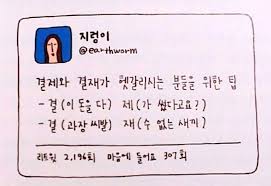 지렁이
@earthworm
결제와 결재가 헷갈리시는 분들을 위한 팁
- 결(이 돈을 다) 제(가 썼다고요?)
- 결(과장 씨발) 재(수 없는 새끼)
리트윗 2,196회 마음에 들어요 307회